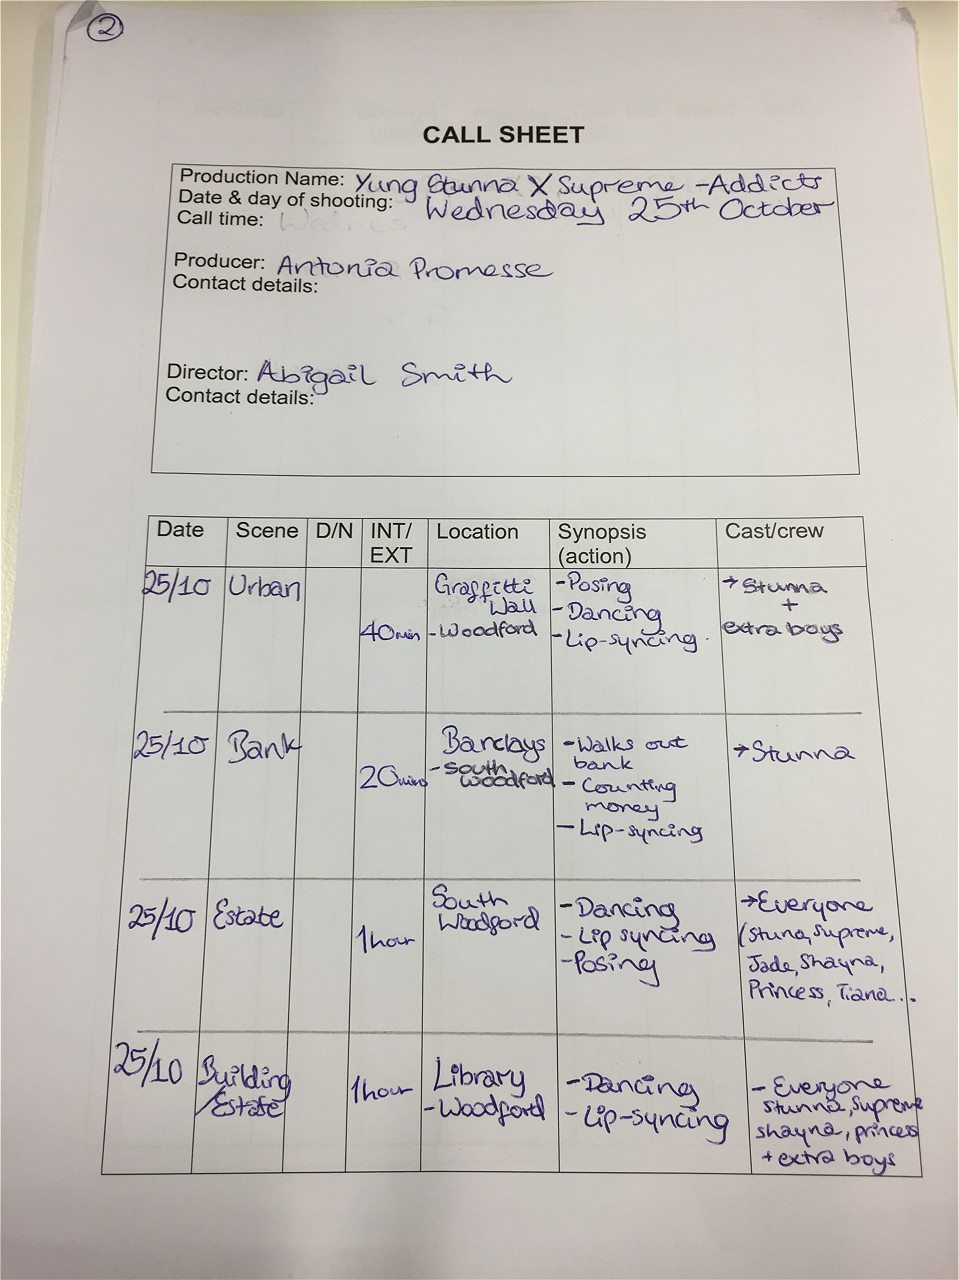 2
CALL SHEET
Production Name: Yung Stunna X Supreme - Addicts
Date & day of shooting: Wednesday 25th October
Call time:
Producer: Antonia Promesse
Contact details:
Director: Abigail Smith
Contact details:
Date Scene D/N INT/ EXT Location Synopsis (action) Cast/crew
25/10 Urban
40min
Graffitti
Wall
- Woodford
- Posing
- Dancing
- Lip-syncing.
→ Stunna
+
extra boys
25/10 Bank
20mins
Barclays
- South
Woodford
- Walks out
bank
- Counting
money
- Lip-syncing
→ Stunna
25/10 Estate
1 hour
South
Woodford
- Dancing
- Lip syncing
- Posing
→ Everyone
(Stuna, Supreme,
Jade, Shayna,
Princess, Tiana...
25/10 Building
/Estate
1 hour
Library
- Woodford
- Dancing
- Lip-syncing
- Everyone
Stunna, Supreme
shayna, princess
+ extra boys